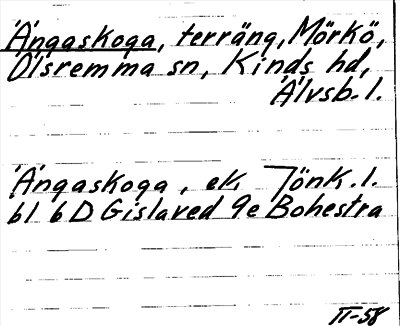 Ängaskoga, terräng, Mörkö,
Ölsremma sn, Kinds hd,
Älvsb. l.
Ängaskoga, ek, Jönk. l.
bl 6D Gislaved 9e Bohestra
II-58